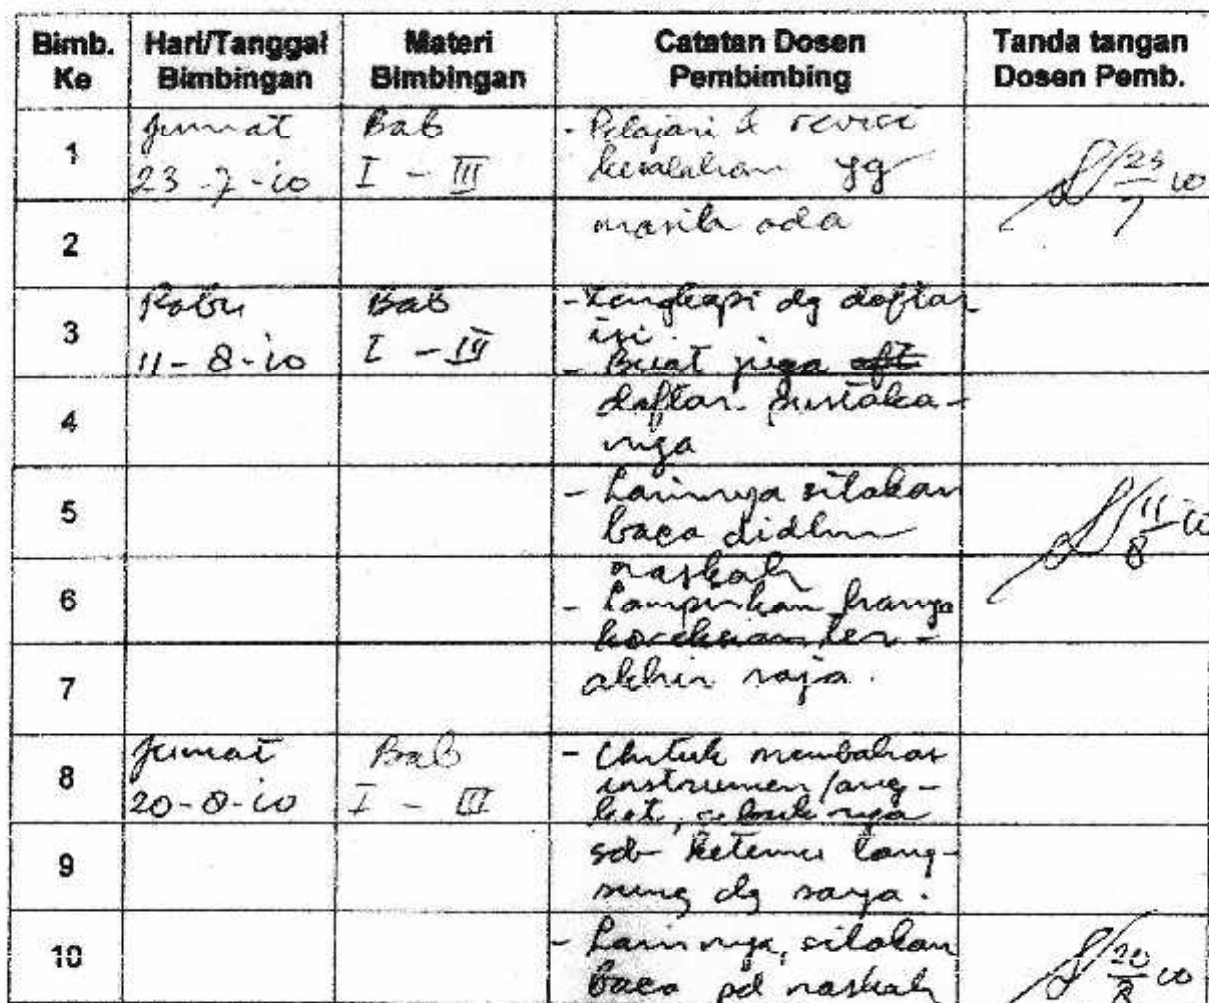 Bimb. Ke Hari/Tanggal Bimbingan Materi Bimbingan Catatan Dosen Pembimbing Tanda tangan Dosen Pemb.
1 Jumat Bab - Pelajari & revisi
23-7-10 I - III kesalahan yg 23/7 10
2 masih ada
3 Rabu Bab - Lengkapi dg daftar
isi.
11-8-10 I - III - Buat juga
4 daftar pustaka-
nya
5 - Lainnya silakan
baca didlm 11/8 10
naskah
6 - Lampirkan hanya
koreksian ter-
7 akhir saja.
8 Jumat Bab - Untuk membahas
instrumen/ang-
20-8-10 I - III ket, sebaiknya
9 sdr ketemu lang-
sung dg saya.
10 - Lainnya, silakan
baca pd naskah 20/8 10